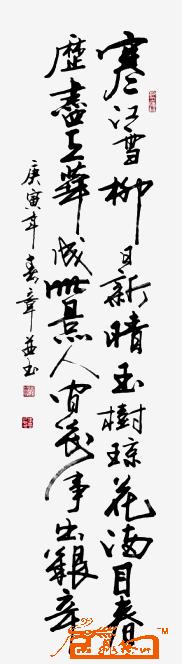 寒江雪柳日新晴玉樹琼花满目春
歷盡天華成此景人间萬事出艱辛
庚寅年 春章並书